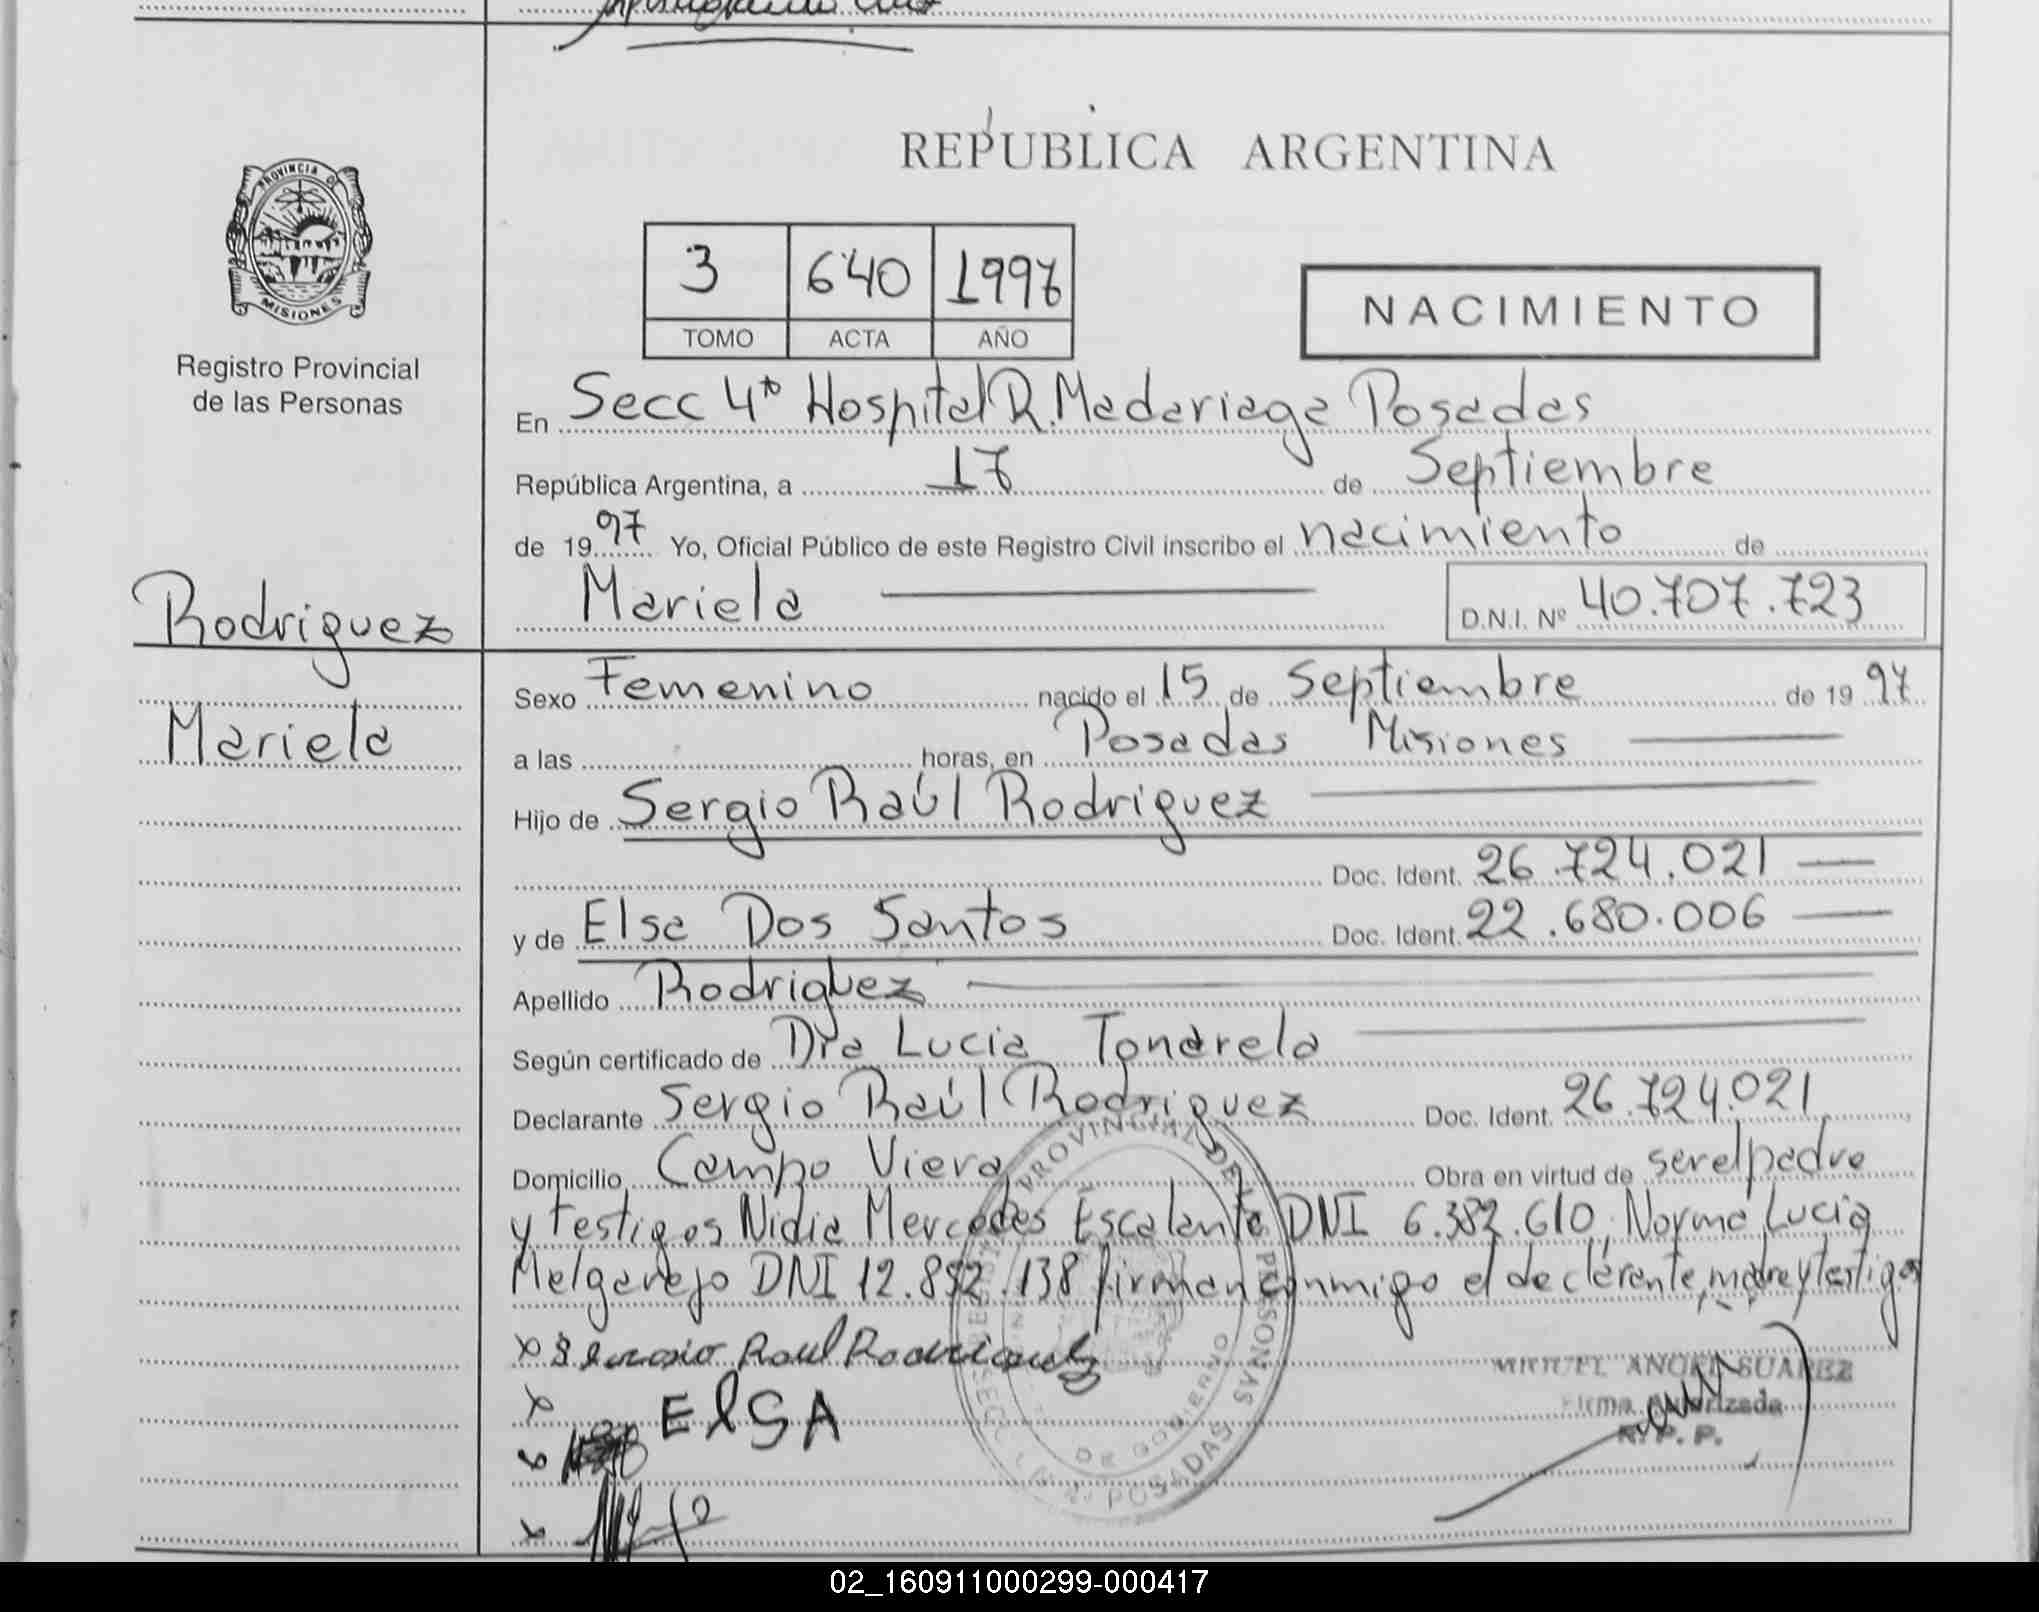 REPUBLICA ARGENTINA
PROVINCIA DE
MISIONES
Registro Provincial
de las Personas
3 640 1997
TOMO ACTA AÑO
NACIMIENTO
En Secc 4ta Hospital R. Madariaga Posadas
República Argentina, a 17 de Septiembre
de 1997 Yo, Oficial Público de este Registro Civil inscribo el nacimiento de
Mariela D.N.I. Nº 40.707.723
Rodriguez
Mariela
Sexo Femenino nacido el 15 de Septiembre de 1997
a las horas, en Posadas Misiones
Hijo de Sergio Raúl Rodriguez
Doc. Ident. 26.724.021
y de Elsa Dos Santos Doc. Ident. 22.680.006
Apellido Rodriguez
Según certificado de Dra Lucia Tonarela
Declarante Sergio Raúl Rodriguez Doc. Ident. 26.724.021
Domicilio Campo Viera Obra en virtud de ser el padre
y testigos Nidia Mercedes Escalante DNI 6.382.610, Norma Lucia
Melgarejo DNI 12.852.138 firman conmigo el declarante, madre y testigos
x Sergio Raul Rodriguez
x ElSA
MIGUEL ANGEL SUAREZ
Firma Autorizada
R. P. P.
02_160911000299-000417